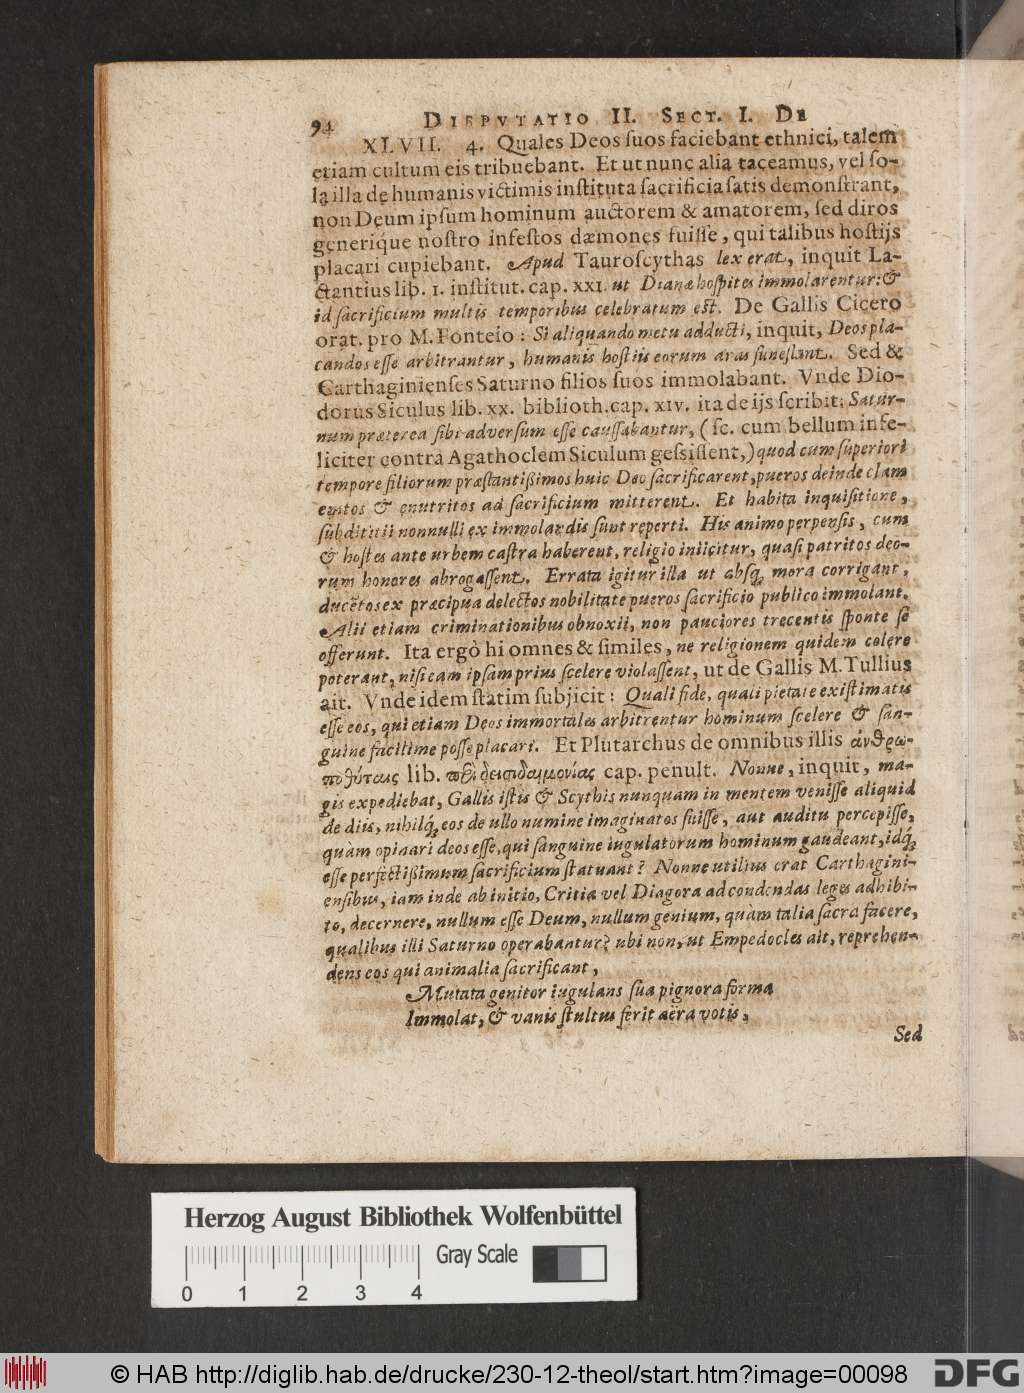 94 DISPVTATIO II. SECT. I. DE
XLVII. 4. Quales Deos suos faciebant ethnici, talem
etiam cultum eis tribuebant. Et ut nunc alia taceamus, vel so-
la illa de humanis victimis instituta sacrificia satis demonstrant,
non Deum ipsum hominum auctorem & amatorem, sed diros
generique nostro infestos dæmones fuisse, qui talibus hostijs
placari cupiebant. Apud Tauroscythas lex erat, inquit La-
ctantius lib. 1. institut. cap. XXI. ut Dianæ hospites immolarentur: &
id sacrificium multis temporibus celebratum est. De Gallis Cicero
orat. pro M. Fonteio: Si aliquando metu adducti, inquit, Deos pla-
candos esse arbitrantur, humanis hostiis eorum aras funestant. Sed &
Carthaginienses Saturno filios suos immolabant. Vnde Dio-
dorus Siculus lib. XX. biblioth. cap. XIV. ita de ijs scribit: Satur-
num præterea sibi adversum esse caussabantur, (sc. cum bellum infe-
liciter contrà Agathoclem Siculum gessissent,) quod cum superiori
tempore filiorum præstantißimos huic Deo sacrificarent, pueros deinde clam
emtos & enutritos ad sacrificium mitterent. Et habita inquisitione,
subdititii nonnulli ex immolandis sunt reperti. His animo perpensis, cum
& hostes ante urbem castra haberent, religio iniicitur, quasi patritos deo-
rum honores abrogassent. Errata igitur illa ut absq; mora corrigant,
ducētos ex præcipua delectos nobilitate pueros sacrificio publico immolant.
Alii etiam criminationibus obnoxii, non pauciores trecentis sponte se
offerunt. Ita ergò hi omnes & similes, ne religionem quidem colere
poterant, nisi eam ipsam prius scelere violassent, ut de Gallis M. Tullius
ait. Vnde idem statim subjicit: Quali fide, quali pietate existimatis
esse eos, qui etiam Deos immortales arbitrentur hominum scelere & san-
guine facillime posse placari. Et Plutarchus de omnibus illis ἀνθρω-
ποθύταις lib. περὶ δεισιδαιμονίας cap. penult. Nonne, inquit, ma-
gis expediebat, Gallis istis & Scythis nunquam in mentem venisse aliquid
de diis, nihilq; eos de ullo numine imaginatos fuisse, aut auditu percepisse,
quàm opinari deos esse, qui sanguine iugulatorum hominum gaudeant, idq;
esse perfectißimum sacrificium statuant? Nonne utilius erat Carthagini-
ensibus, iam inde ab initio, Critia vel Diagora ad condendas leges adhibi-
to, decernere, nullum esse Deum, nullum genium, quàm talia sacra facere,
qualibus illi Saturno operabantur? ubi non, ut Empedocles ait, reprehen-
dens eos qui animalia sacrificant,
Mutata genitor iugulans sua pignora forma
Immolat, & vanis stultus ferit aëra votis,
Sed
Herzog August Bibliothek Wolfenbüttel
Gray Scale
0 1 2 3 4
© HAB http://diglib.hab.de/drucke/230-12-theol/start.htm?image=00098
DFG